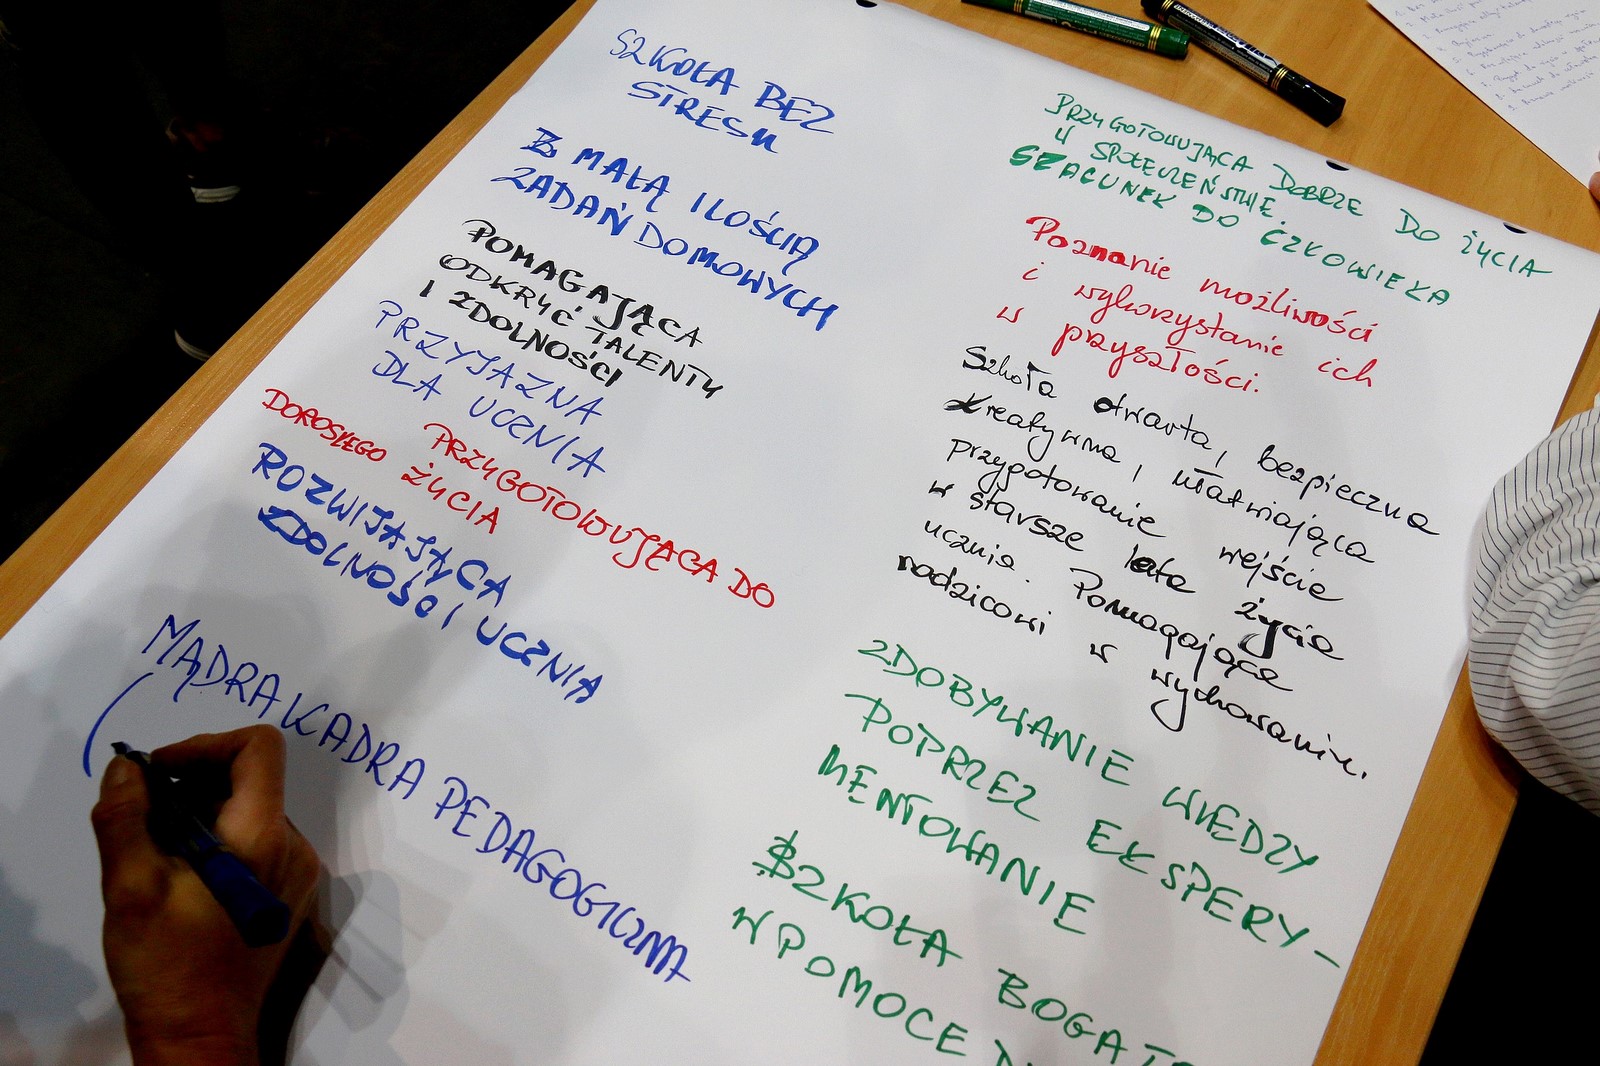 SZKOŁA BEZ
STRESU
Z MAŁĄ ILOŚCIĄ
ZADAŃ DOMOWYCH
POMAGAJĄCA
ODKRYĆ TALENTY
I ZDOLNOŚCI
PRZYJAZNA
DLA UCZNIA
PRZYGOTOWUJĄCA DO
DOROSŁEGO ŻYCIA
ROZWIJAJĄCA
ZDOLNOŚCI UCZNIA
MĄDRA KADRA PEDAGOGICZNA
PRZYGOTOWUJĄCA DOBRZE DO ŻYCIA
W SPOŁECZEŃSTWIE.
SZACUNEK DO CZŁOWIEKA
Poznanie możliwości
i wykorzystanie ich
w przyszłości.
Szkoła otwarta, bezpieczna
kreatywna, ułatwiająca
przygotowanie wejście
w starsze lata życia
ucznia. Pomagająca
rodzicowi w wychowaniu.
ZDOBYWANIE WIEDZY
POPRZEZ EKSPERY-
MENTOWANIE
SZKOŁA BOGATA
W POMOCE